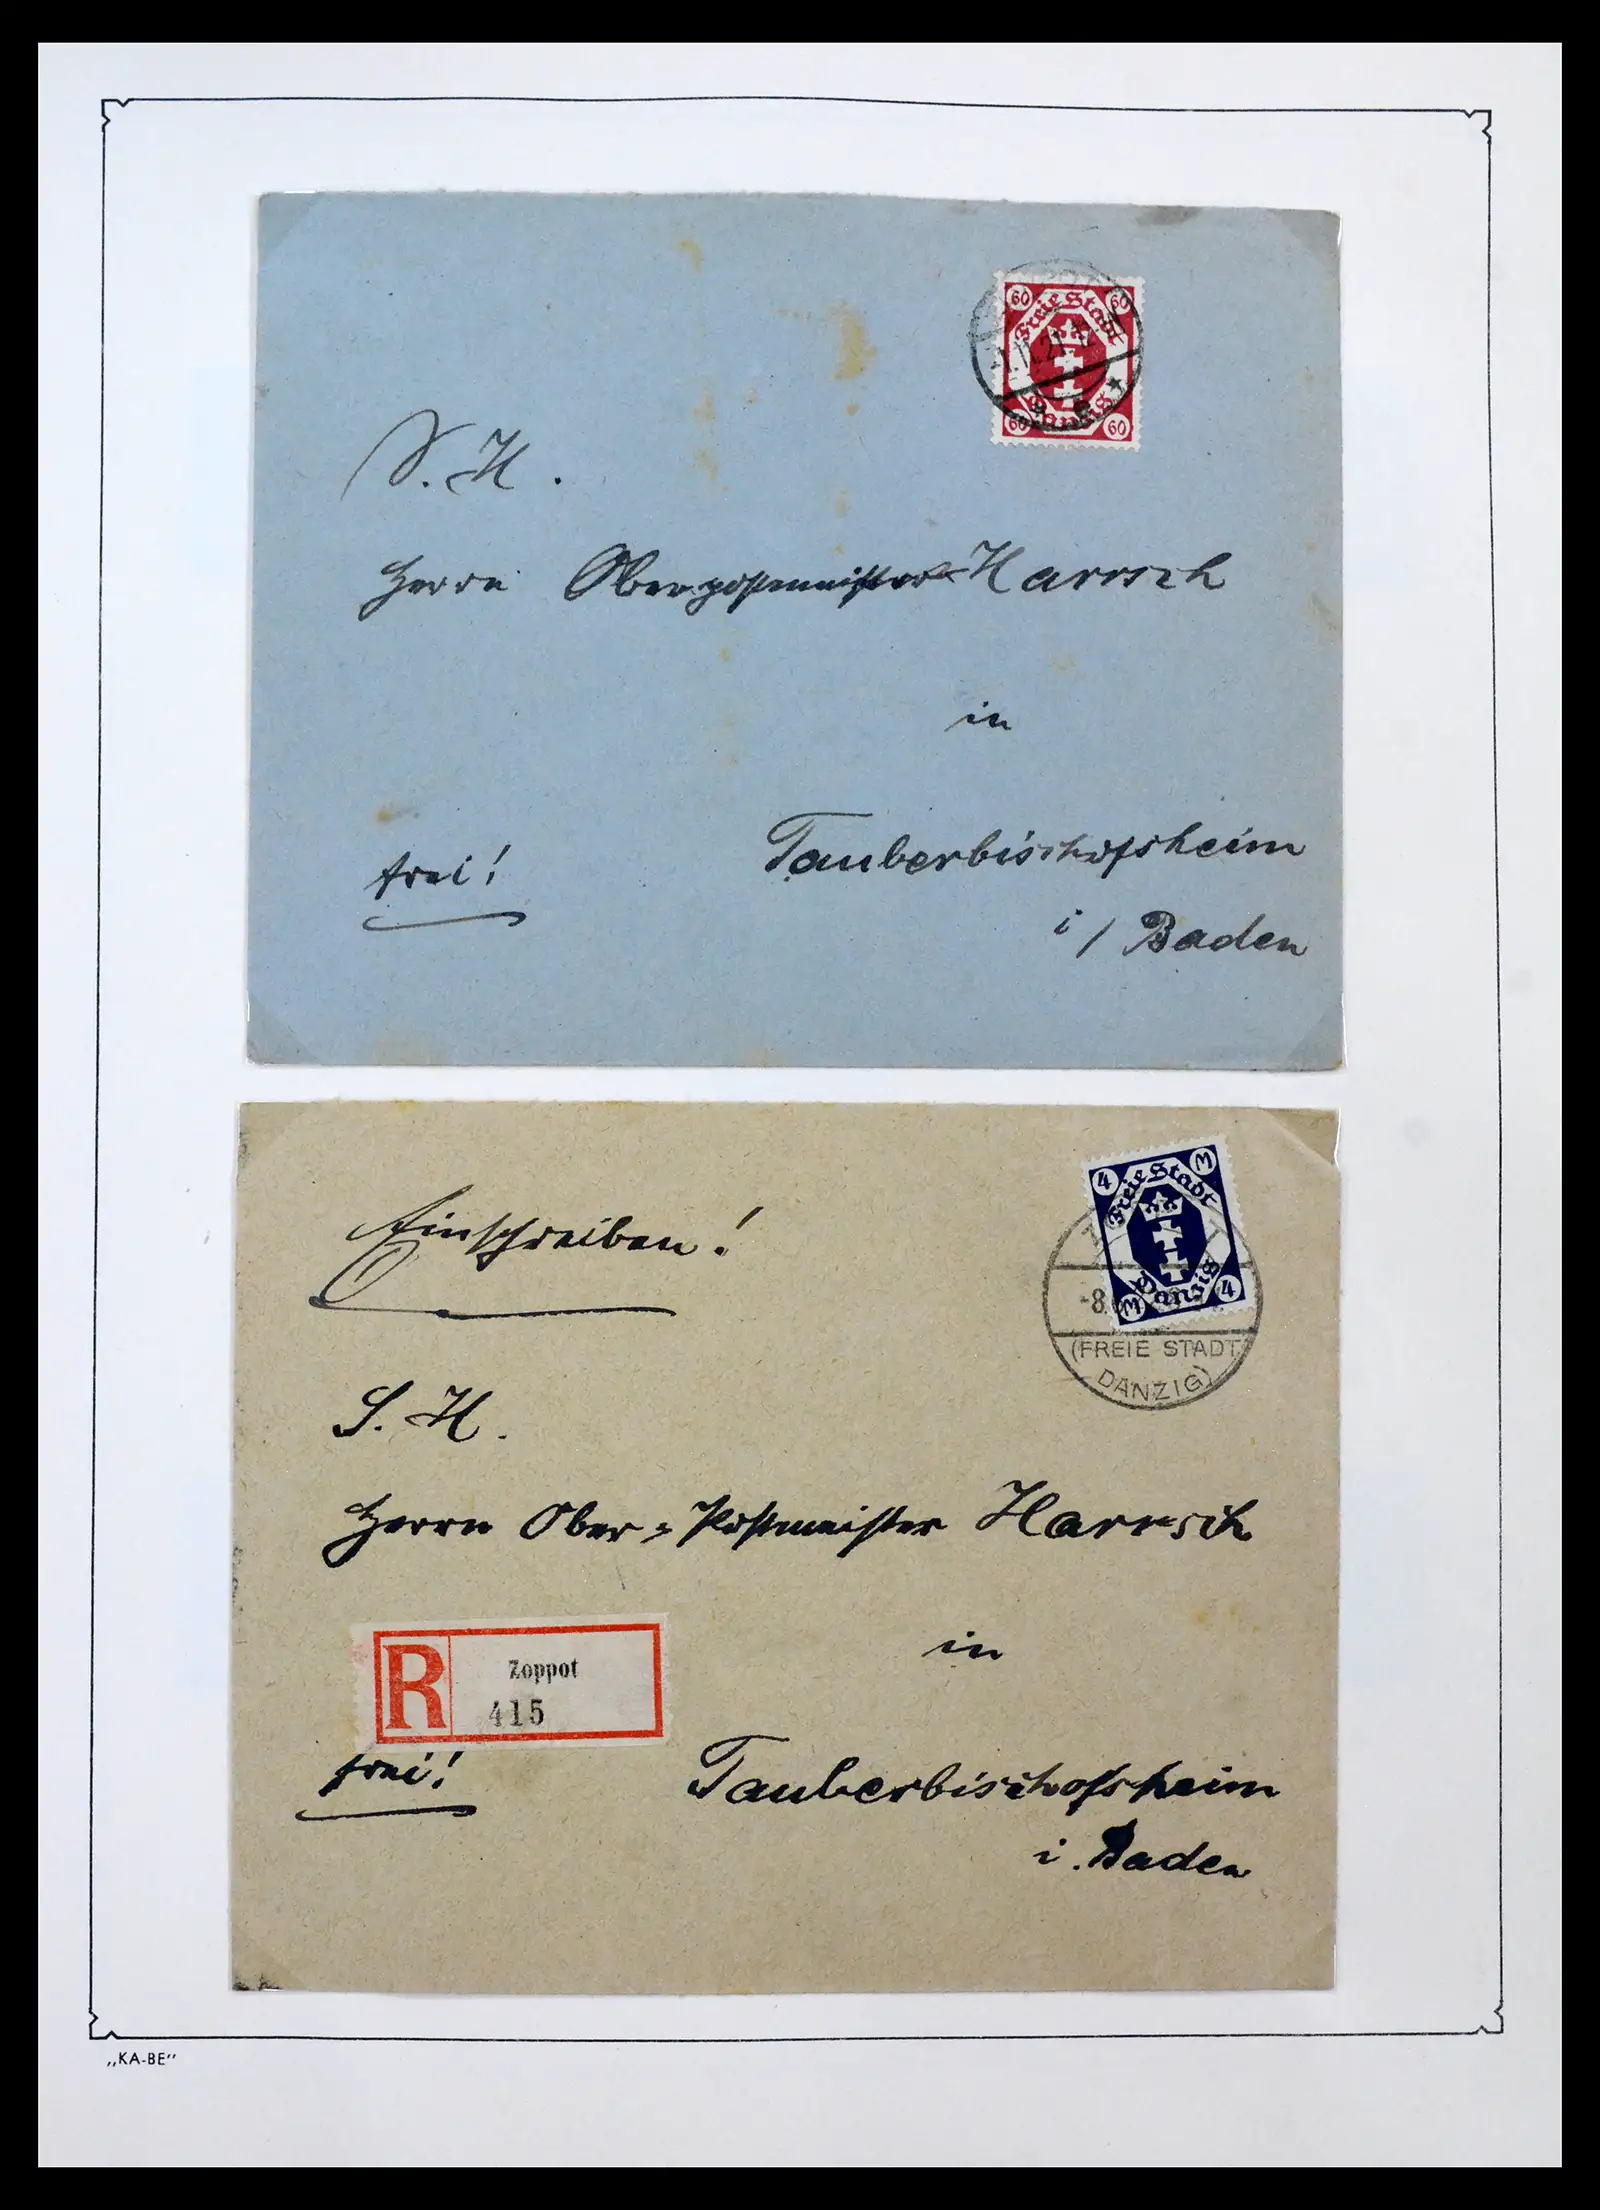 60 60
Freie Stadt
1.11.21
Danzig
60 60
S. H.
Herrn Oberpostmeister Harrsch
in
Tauberbischofsheim
frei!
i/ Baden
4 M
Freie Stadt
Danzig
M 4
-8.
(FREIE STADT
DANZIG)
Einschreiben!
S. H.
Herrn Ober=Postmeister Harrsch
in
R Zoppot
415
frei!
Tauberbischofsheim
i. Baden
„KA-BE"